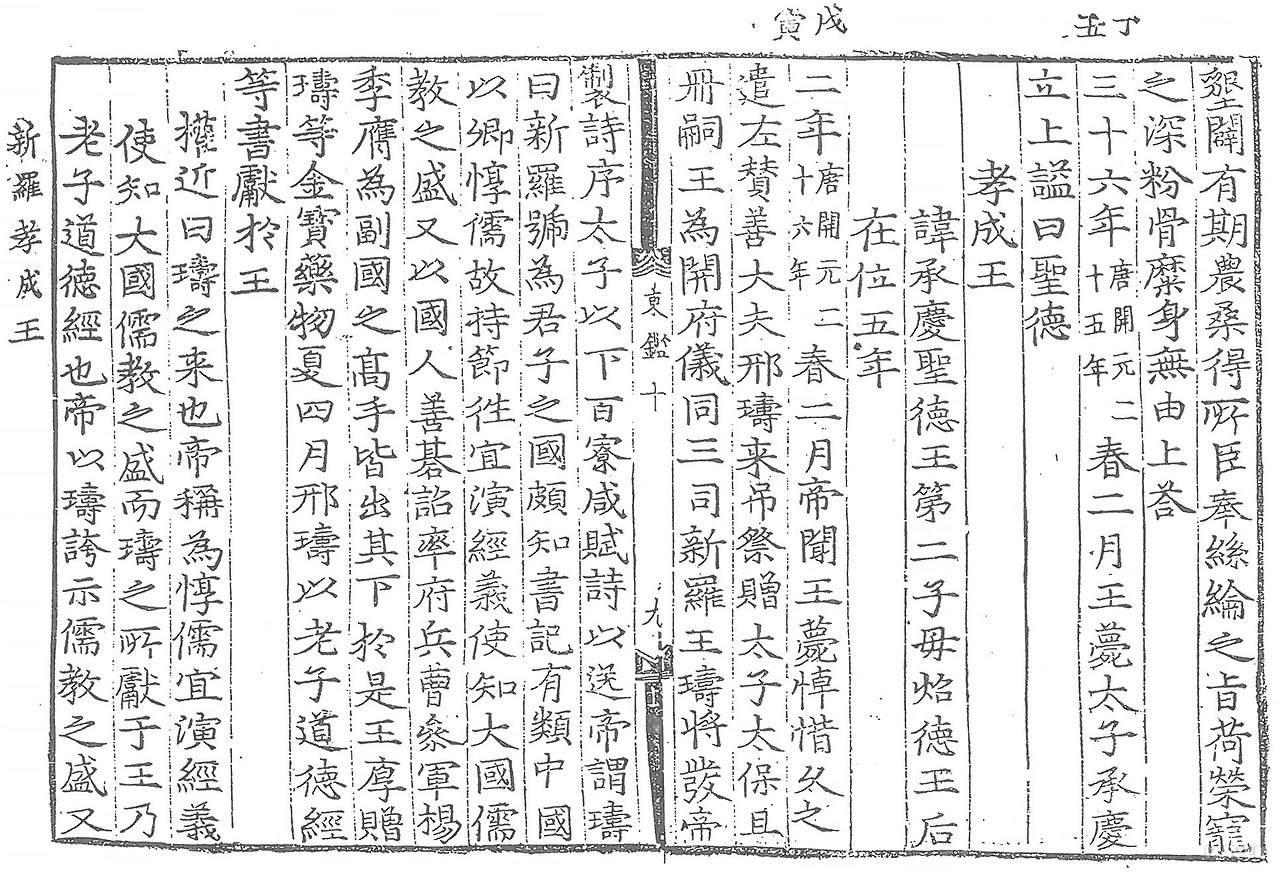 丁丑
戊寅
墾闢有期農桑得所臣奉絲綸之旨荷榮寵
之深粉骨糜身無由上荅
三十六年唐開元二十五年春二月王薨太子承慶
立上諡曰聖德
孝成王
諱承慶聖德王第二子毋炤德王后
在位五年
二年唐開元二十六年春二月帝聞王薨悼惜久之
遣左賛善大夫邢璹来吊祭贈太子太保且
冊嗣王為開府儀同三司新羅王璹將發帝
東鑑十
九
製詩序太子以下百寮咸賦詩以送帝謂璹
曰新羅號為君子之國頗知書記有類中國
以卿惇儒故持節徃宜演經義使知大國儒
教之盛又以國人善碁詔率府兵曹叅軍楊
季膺為副國之髙手皆出其下於是王厚贈
璹等金寶藥物夏四月邢璹以老子道德經
等書獻於王
權近曰璹之来也帝稱為惇儒宜演經義
使知大國儒教之盛而璹之所獻于王乃
老子道德經也帝以璹誇示儒教之盛又
新羅孝成王